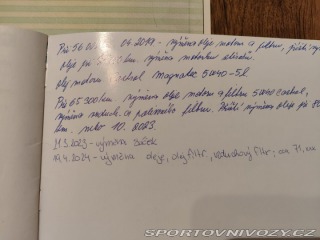 Při 56 04. 2019 - výměna oleje motoru a filtru, příští
oleje při km výměna motor
olej motoru castrol Magnatec 5W40 - 5l
Při 65 300 km výměna oleje motoru a filtru 5W40 castrol,
výměna vzduch. a palivového filtru. Příští výměna oleje při
km. nebo 10. 2023.
2023 - výměna
19.4.2024 - výměna oleje, olej filtr, vzduchový filtr; 71
SPORTOVNIVOZY.CZ